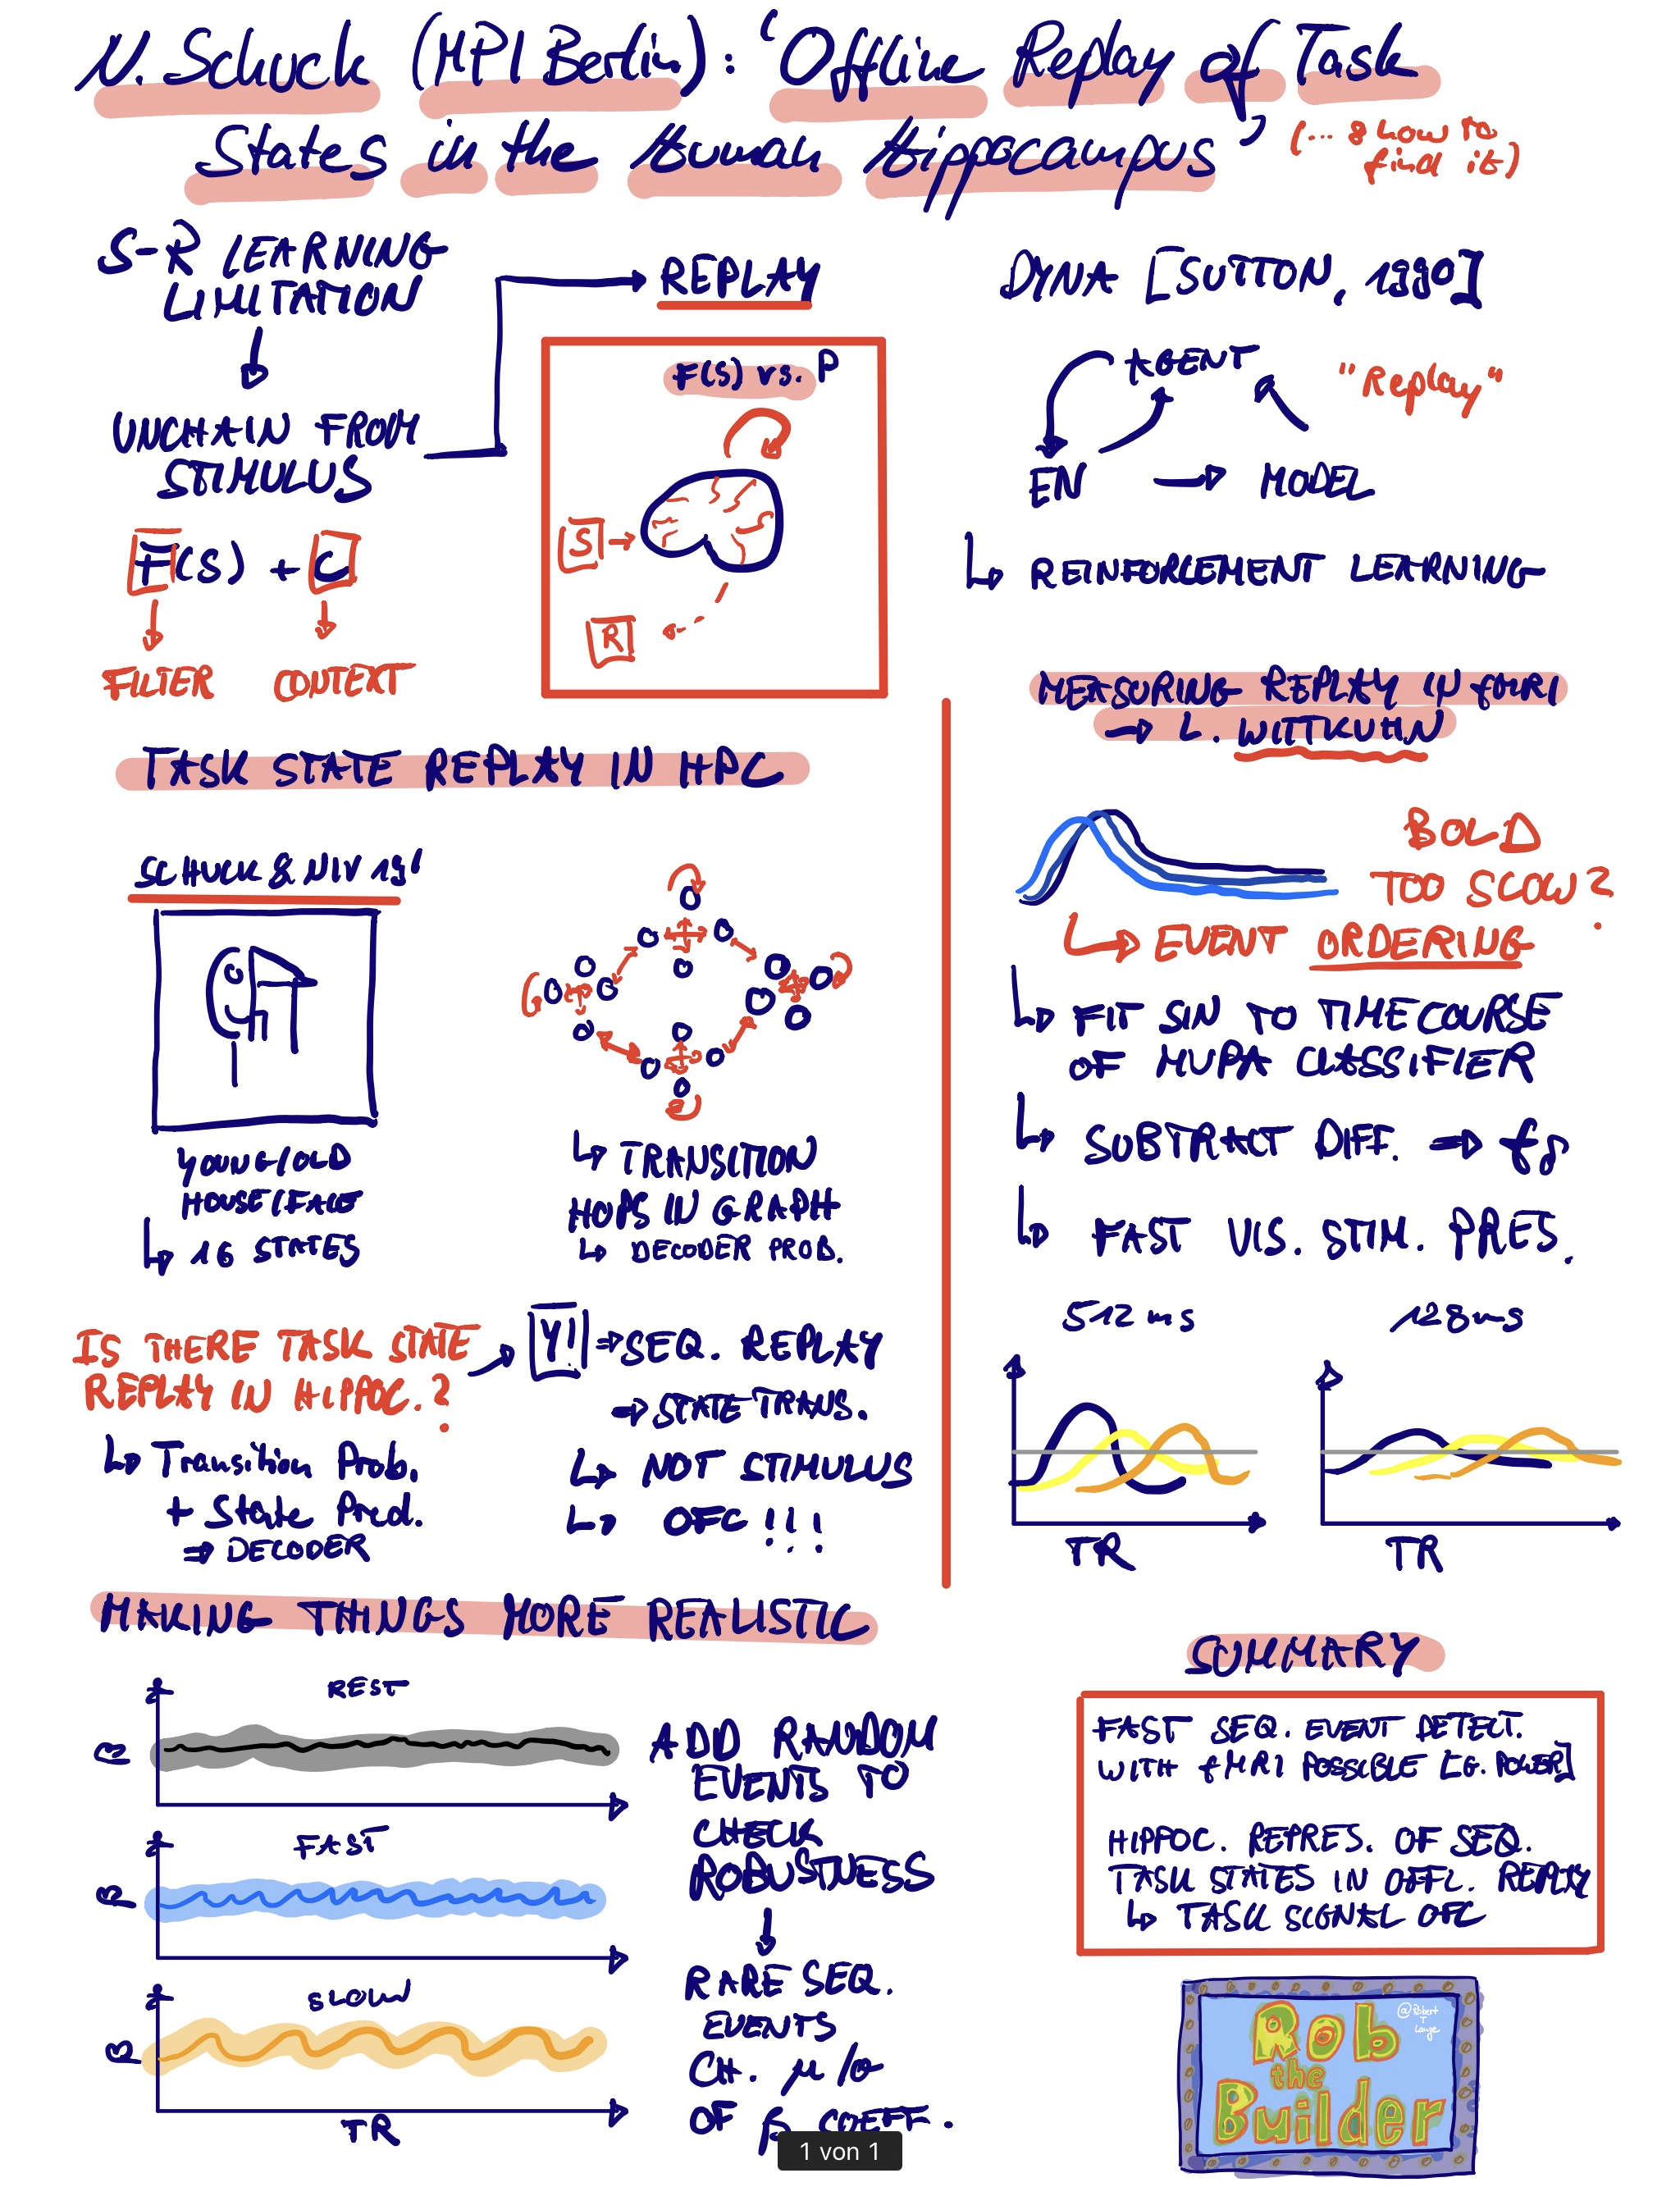 N. Schuck (MPI Berlin): 'Offline Replay of Task
States in the Human Hippocampus'
(... & how to
find it)
S-R LEARNING
LIMITATION
UNCHAIN FROM
STIMULUS
F(S) + C
FILTER CONTEXT
REPLAY
F(S) vs. P
S
R
DYNA [SUTTON, 1990]
AGENT
"Replay"
EN → MODEL
↳ REINFORCEMENT LEARNING
TASK STATE REPLAY IN HPC
SCHUCK & NIV 19'
YOUNG/OLD
HOUSE/FACE
↳ 16 STATES
↳ TRANSITION
HOPS IN GRAPH
↳ DECODER PROB.
IS THERE TASK STATE
REPLAY IN HIPPOC.?
↳ Transition Prob.
+ State Pred.
⇒ DECODER
Y! ⇒ SEQ. REPLAY
⇒ STATE TRANS.
↳ NOT STIMULUS
↳ OFC!!!
MEASURING REPLAY IN fMRI
→ L. WITTKUHN
BOLD
TOO SLOW?
↳ EVENT ORDERING
↳ FIT SIN TO TIMECOURSE
OF MVPA CLASSIFIER
↳ SUBTRACT DIFF. ⇒
↳ FAST VIS. STIM. PRES.
512 ms 128 ms
TR TR
MAKING THINGS MORE REALISTIC
REST
β
FAST
β
SLOW
β
TR
ADD RANDOM
EVENTS TO
CHECK
ROBUSTNESS
↓
RARE SEQ.
EVENTS
CH. μ/σ
OF β COEFF.
SUMMARY
FAST SEQ. EVENT DETECT.
WITH fMRI POSSIBLE [G. POWER]
HIPPOC. REPRES. OF SEQ.
TASK STATES IN OFFL. REPLAY
↳ TASK SIGNAL OFC
Rob
the
Builder
@Robert
T
Lange
1 von 1